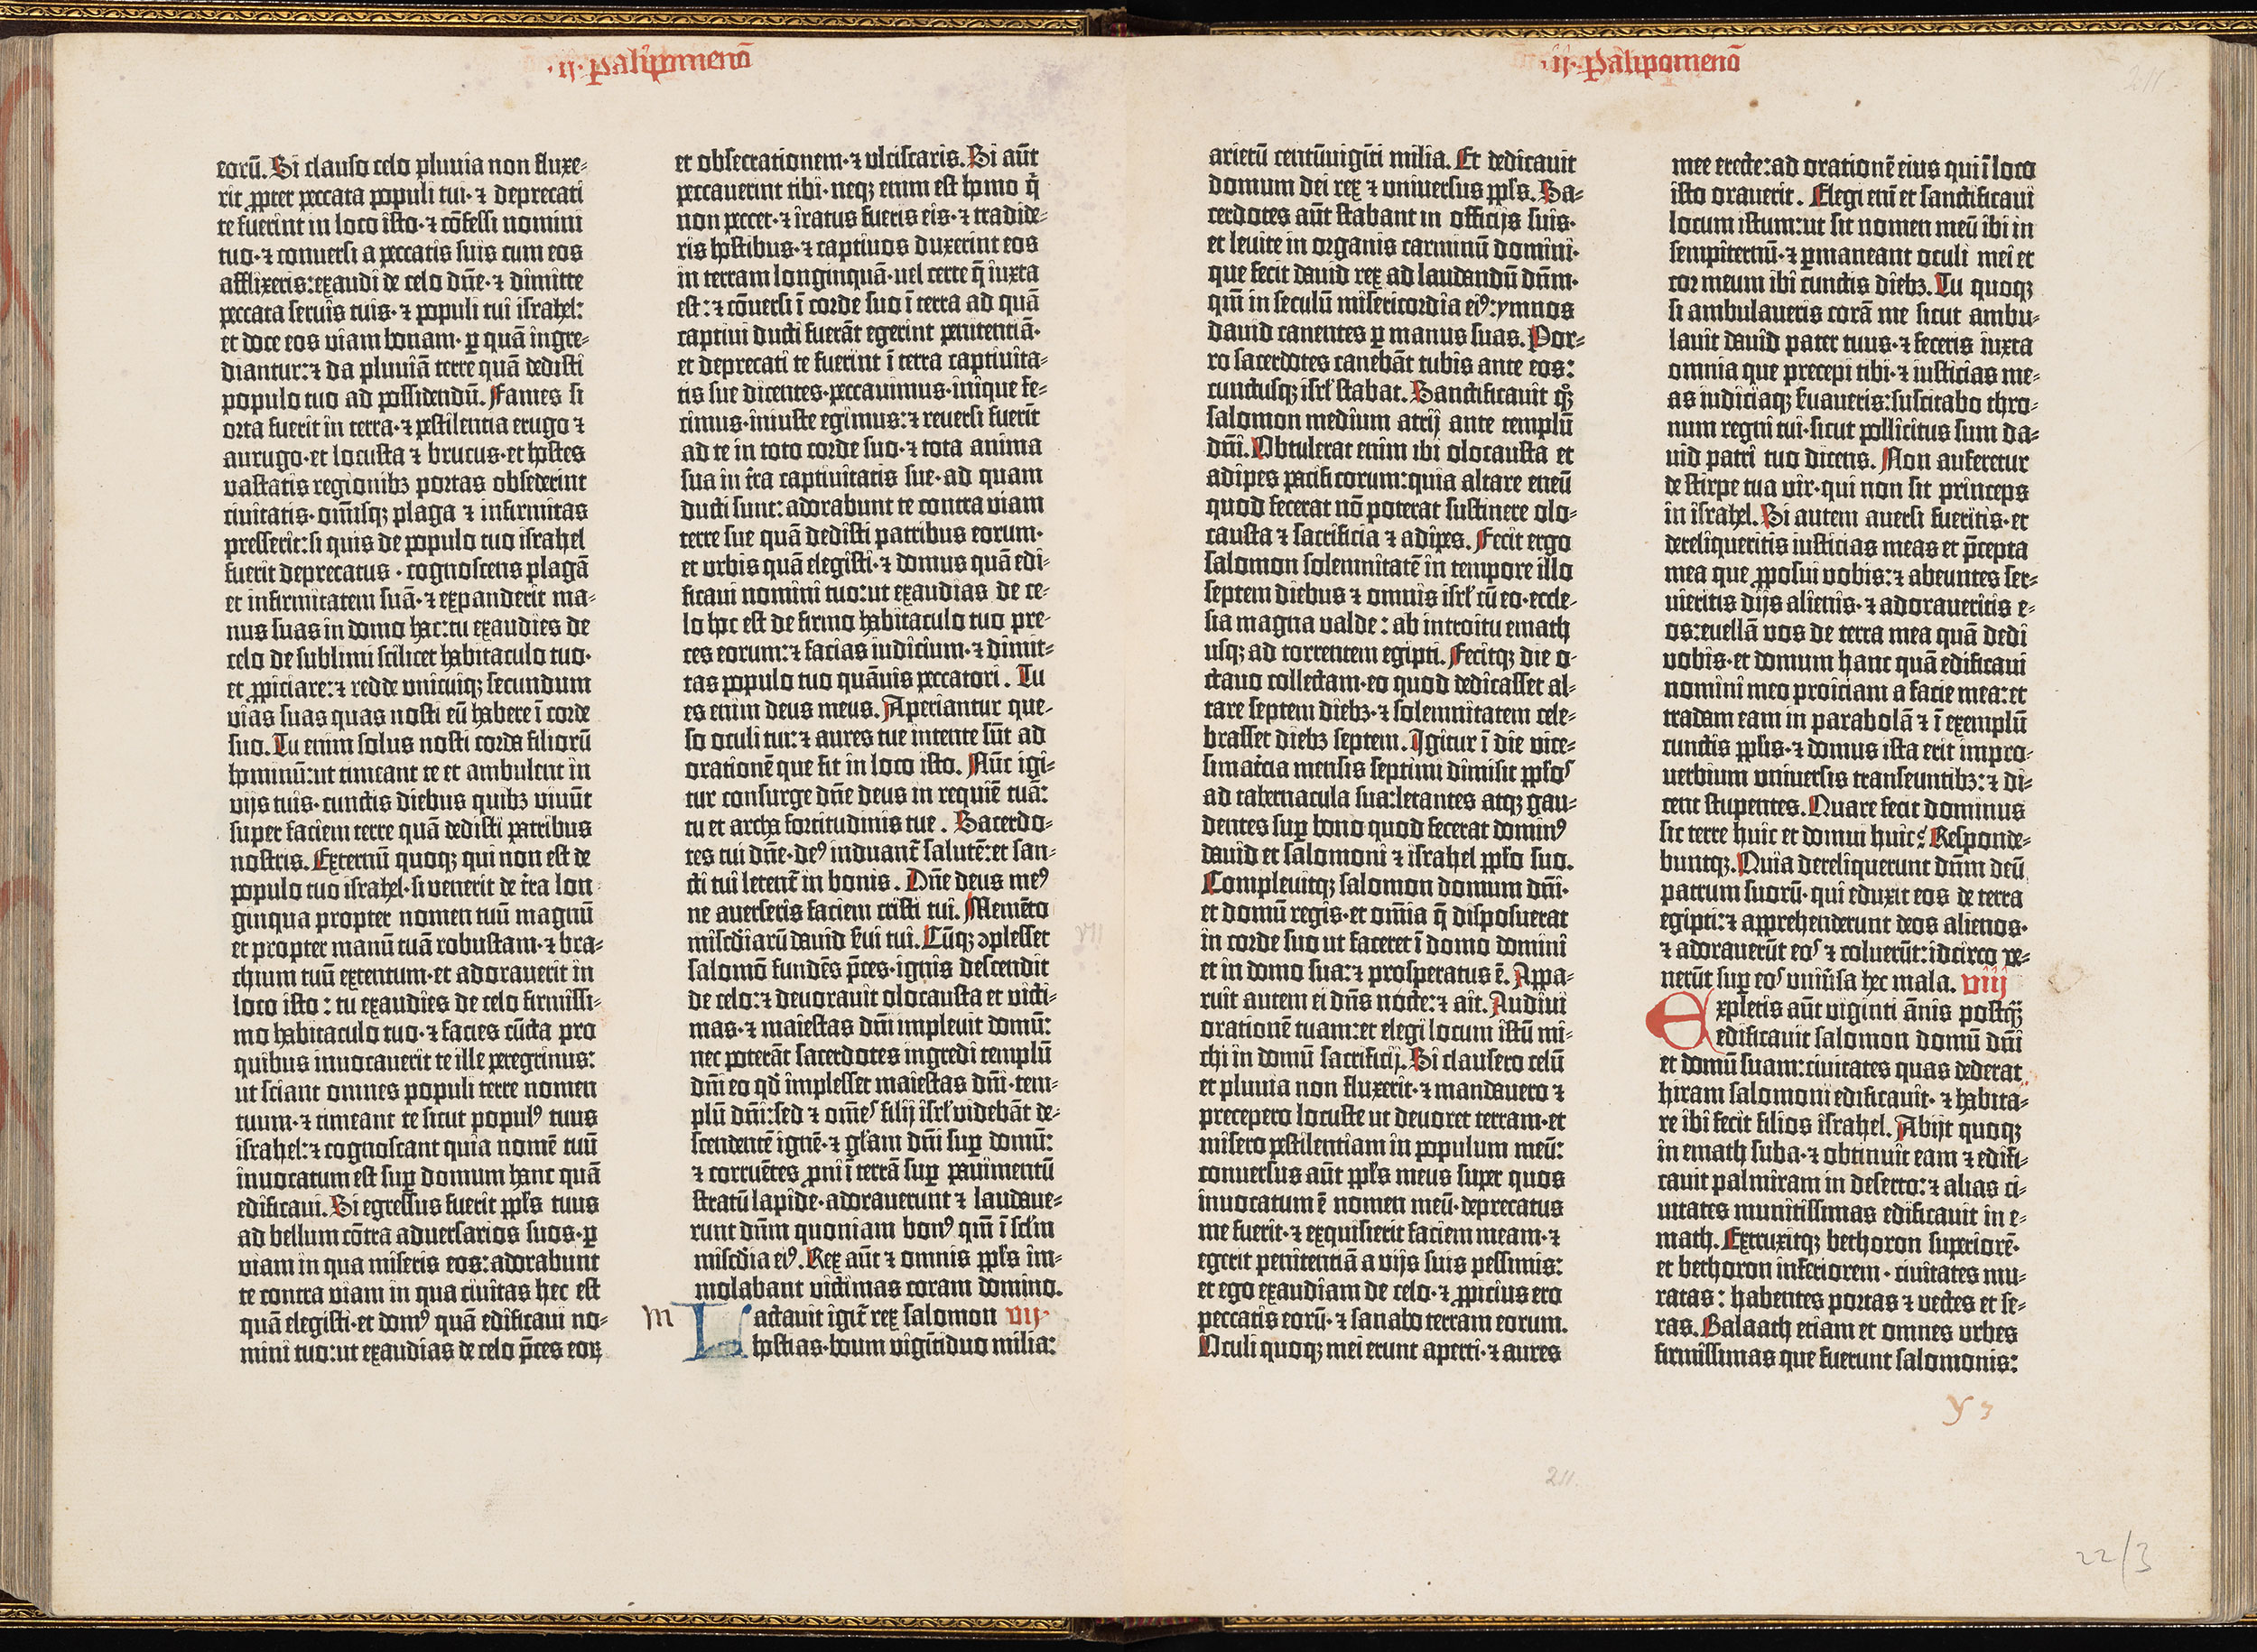 ·ij· Palipomenō
eorū. Si clauso celo pluvia non fluxe-
rit ꝓpter peccata populi tui· ⁊ deprecati
te fuerint in loco isto· ⁊ cōfessi nomini
tuo· ⁊ conversi a peccatis suis cum eos
afflixeris: exaudi de celo dn̄e· ⁊ dimitte
peccata servis tuis· ⁊ populi tui israhel:
et doce eos viam bonam· ꝑ quā ingre-
diantur: ⁊ da pluviā terre quā dedisti
populo tuo ad possidendū. Fames si
orta fuerit in terra· ⁊ pestilentia erugo ⁊
aurugo· et locusta ⁊ brucus· et hostes
vastatis regionibꝫ portas obsederint
civitatis· om̄isqꝫ plaga ⁊ infirmitas
presserit: si quis de populo tuo israhel
fuerit deprecatus· cognoscens plagā
et infirmitatem suā· ⁊ expanderit ma-
nus suas in domo hac: tu exaudies de
celo de sublimi scilicet habitaculo tuo·
et ꝓpiciare: ⁊ redde unicuiqꝫ secundum
vias suas quas nosti eū habere ī corde
suo. Tu enim solus nosti corda filiorū
hominū: ut timeant te et ambulent in
vijs tuis· cunctis diebus quibꝫ vivūt
super faciem terre quā dedisti patribus
nostris. Externū quoqꝫ qui non est de
populo tuo israhel· si venerit de t̄ra lon-
ginqua propter nomen tuū magnū
et propter manū tuā robustam· ⁊ bra-
chium tuū extentum· et adoraverit in
loco isto: tu exaudies de celo firmissi-
mo habitaculo tuo· ⁊ facies cūcta pro
quibus invocaverit te ille peregrinus:
ut sciant omnes populi terre nomen
tuum· ⁊ timeant te sicut populꝰ tuus
israhel: ⁊ cognoscant quia nomē tuū
invocatum est suꝑ domum hanc quā
edificavi. Si egressus fuerit pp̄ls tuus
ad bellum cōtra adversarios suos· ꝑ
viam in qua miseris eos: adorabunt
te contra viam in qua civitas hec est
quā elegisti· et domꝰ quā edificavi no-
mini tuo: ut exaudias de celo p̄ces eoꝝ
et obsecrationem· ⁊ ulciscaris. Si aūt
peccaverint tibi· neqꝫ enim est homo q̄
non peccet· ⁊ iratus fueris eis· ⁊ tradide-
ris hostibus· ⁊ captivos duxerint eos
in terram longinquā· vel certe q̄ iuxta
est: ⁊ cōversi ī corde suo ī terra ad quā
captivi ducti fuerāt egerint penitentiā·
et deprecati te fuerint ī terra captivita-
tis sue dicentes· peccavimus· inique fe-
cimus· iniuste egimus: ⁊ reversi fuerīt
ad te in toto corde suo· ⁊ tota anima
sua in t̄ra captivitatis sue· ad quam
ducti sunt: adorabunt te contra viam
terre sue quā dedisti patribus eorum·
et urbis quā elegisti· ⁊ domus quā edi-
ficavi nomini tuo: ut exaudias de ce-
lo hoc est de firmo habitaculo tuo pre-
ces eorum: ⁊ facias iudicium· ⁊ dimit-
tas populo tuo quāvis peccatori. Tu
es enim deus meus. Aperiantur que-
so oculi tui: ⁊ aures tue intente sūt ad
orationē que fit in loco isto. Nūc igi-
tur consurge dn̄e deus in requiē tuā:
tu et archa fortitudinis tue. Sacerdo-
tes tui dn̄e· deꝰ induant̄ salutē: et san-
cti tui letent̄ in bonis. Dn̄e deus meꝰ
ne averseris faciem cristi tui. Memēto
misc̄diarū david s̄vi tui. Cūqꝫ ꝯplesset
salomō fundēs p̄ces· ignis descendit
de celo: ⁊ devoravit olocausta et victi-
mas· ⁊ maiestas dn̄i implevit domū:
nec poterāt sacerdotes ingredi templū
dn̄i eo qd̄ implesset maiestas dn̄i· tem-
plū dn̄i: sed ⁊ om̄es filij isrl̄ videbāt de-
scendentē ignē· ⁊ gl̄am dn̄i suꝑ domū:
⁊ corruētes ꝓni ī terrā suꝑ pavimentū
stratū lapide· adoraverunt ⁊ laudave-
runt dn̄m quoniam bonꝰ qm̄ ī sc̄lm
misc̄dia eiꝰ. Rex aūt ⁊ omnis pp̄ls im-
molabant victimas coram domino.
m Lactavit igit̄ rex salomon vij·
hostias· boum vigītiduo milia:
·ij· Palipomenō
arietū centūvigīti milia. Et dedicavit
domum dei rex ⁊ universus pp̄ls. Sa-
cerdotes aūt stabant in officijs suis·
et levite in organis carminū domini·
que fecit david rex ad laudandū dn̄m·
qm̄ in seculū misericordia eiꝰ: ymnos
david canentes ꝑ manus suas. Por-
ro sacerdotes canebāt tubis ante eos:
cunctusqꝫ isrl̄ stabat. Sanctificavit qͦꝫ
salomon medium atrij ante templū
dn̄i. Obtulerat enim ibi olocausta et
adipes pacificorum: quia altare eneū
quod fecerat nō poterat sustinere olo-
causta ⁊ sacrificia ⁊ adipes. Fecit ergo
salomon solemnitatē in tempore illo
septem diebus ⁊ omnis isrl̄ cū eo· eccle-
sia magna valde: ab introitu emath
usqꝫ ad torrentem egipti. Fecitqꝫ die o-
ctavo collectam· eo quod dedicasset al-
tare septem diebꝫ· ⁊ solemnitatem cele-
brasset diebꝫ septem. Igitur ī die vice-
simatercia mensis septimi dimisit pp̄los
ad tabernacula sua: letantes atqꝫ gau-
dentes suꝑ bono quod fecerat dominꝰ
david et salomoni ⁊ israhel pp̄lo suo.
Complevitqꝫ salomon domum dn̄i·
et domū regis· et om̄ia q̄ disposuerat
in corde suo ut faceret ī domo domini
et in domo sua: ⁊ prosperatus ē. Appa-
ruit autem ei dn̄s nocte: ⁊ ait. Audivi
orationē tuam: et elegi locum istū mi-
chi in domū sacrificij. Si clausero celū
et pluvia non fluxerit· ⁊ mandavero ⁊
precepero locuste ut devoret terram· et
misero pestilentiam in populum meū:
conversus aūt pp̄ls meus super quos
invocatum ē nomen meū· deprecatus
me fuerit· ⁊ exquisierit faciem meam· ⁊
egerit penitentiā a vijs suis pessimis:
et ego exaudiam de celo· ⁊ ꝓpicius ero
peccatis eorū· ⁊ sanabo terram eorum.
Oculi quoqꝫ mei erunt aperti· ⁊ aures
mee erecte: ad orationē eius qui ī loco
isto oraverit. Elegi enī et sanctificavi
locum istum: ut sit nomen meū ibi in
sempiternū· ⁊ ꝑmaneant oculi mei et
cor meum ibi cunctis diebꝫ. Tu quoqꝫ
si ambulaveris corā me sicut ambu-
lavit david pater tuus· ⁊ feceris iuxta
omnia que precepi tibi· ⁊ iusticias me-
as iudiciaqꝫ s̄vaveris: suscitabo thro-
num regni tui· sicut pollicitus sum da-
vid patri tuo dicens. Non auferetur
de stirpe tua vir· qui non sit princeps
in israhel. Si autem aversi fueritis· et
dereliqueritis iusticias meas et p̄cepta
mea que ꝓposui vobis: ⁊ abeuntes ser-
vieritis dijs alienis· ⁊ adoraveritis e-
os: evellā vos de terra mea quā dedi
vobis· et domum hanc quā edificavi
nomini meo proiciam a facie mea: et
tradam eam in parabolā ⁊ ī exemplū
cunctis pp̄lis· ⁊ domus ista erit impro-
verbium universis transeuntibꝫ: ⁊ di-
cent stupentes. Quare fecit dominus
sic terre huic et domui huic? Responde-
buntqꝫ. Quia dereliquerunt dn̄m deū
patrum suorū· qui eduxit eos de terra
egipti: ⁊ apprehenderunt deos alienos·
⁊ adoraverūt eos ⁊ coluerūt: idcirco ve-
nerūt suꝑ eos univ̄sa hec mala. viij
Expletis aūt viginti ānis postqꝫ̄
edificavit salomon domū dn̄i
et domū suam: civitates quas dederat
hiram salomoni edificavit· ⁊ habita-
re ibi fecit filios israhel. Abijt quoqꝫ
in emath suba· ⁊ obtinuit eam ⁊ edifi-
cavit palmiram in deserto: ⁊ alias ci-
vitates munitissimas edificavit in e-
math. Extruxitqꝫ bethoron superiorē·
et bethoron inferiorem· civitates mu-
ratas: habentes portas ⁊ vectes et se-
ras. Balaath etiam et omnes urbes
firmissimas que fuerunt salomonis:
y 3
211.
22/3